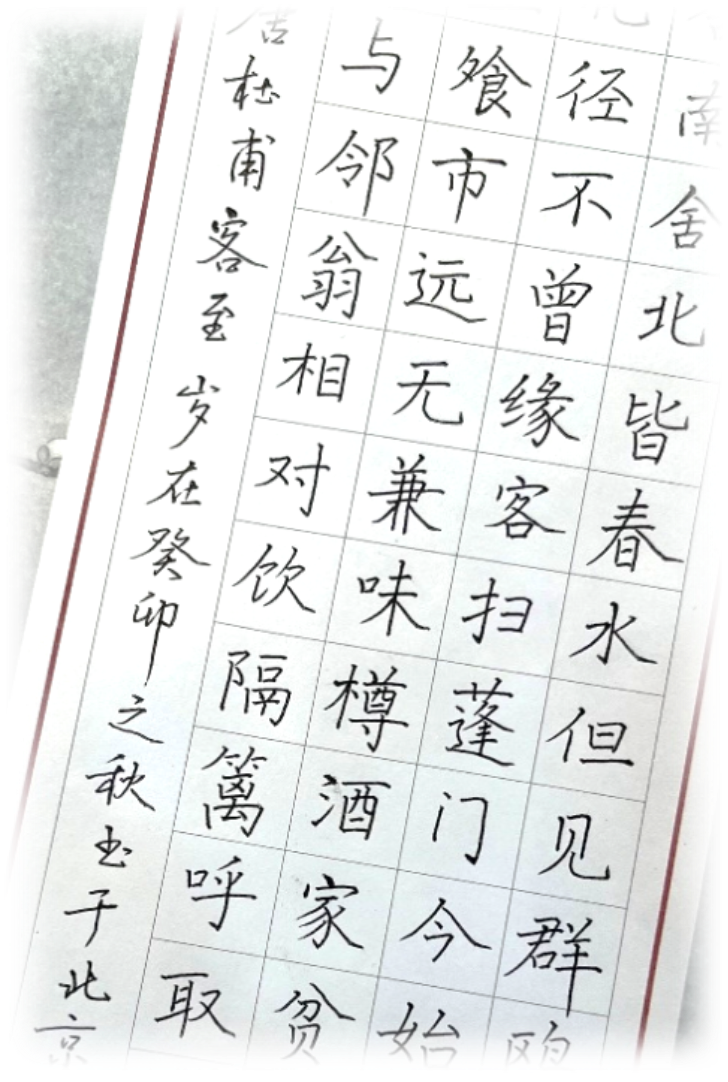 南舍北皆春水但见群鸥
径不曾缘客扫蓬门今始
飧市远无兼味樽酒家贫
与邻翁相对饮隔篱呼取
杜甫客至 岁在癸卯之秋书于北京